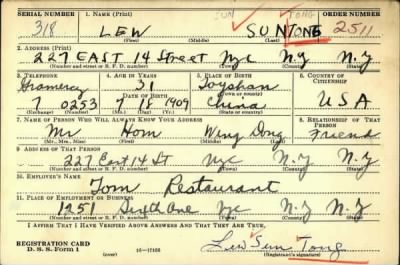 SERIAL NUMBER 1. NAME (Print) SUN TONG ORDER NUMBER
318 LEW SUN TONG 2511
(First) (Middle) (Last)
2. ADDRESS (Print)
227 EAST 14 Street Nyc N.Y N.Y
(Number and street or R. F. D. number) (Town) (County) (State)
3. TELEPHONE 4. AGE IN YEARS 5. PLACE OF BIRTH 6. COUNTRY OF CITIZENSHIP
Gramercy 31 Toyshan
DATE OF BIRTH (Town or county)
7 0253 7 18 1909 China USA
(Exchange) (Number) (Mo.) (Day) (Yr.) (State or country)
7. NAME OF PERSON WHO WILL ALWAYS KNOW YOUR ADDRESS 8. RELATIONSHIP OF THAT PERSON
Mr Hom Wing Dong Friend
(Mr., Mrs., Miss) (First) (Middle) (Last)
9. ADDRESS OF THAT PERSON
227 East 14 St Nyc N.Y N.Y
(Number and street or R. F. D. number) (Town) (County) (State)
10. EMPLOYER'S NAME
Tom Restaurant
11. PLACE OF EMPLOYMENT OR BUSINESS
1251 Sixth Ave Nyc N.Y N.Y
(Number and street or R. F. D. number) (Town) (County) (State)
I AFFIRM THAT I HAVE VERIFIED ABOVE ANSWERS AND THAT THEY ARE TRUE.
REGISTRATION CARD Lew Sun Tong
D. S. S. Form 1 (over) 16—17105 (Registrant's signature)